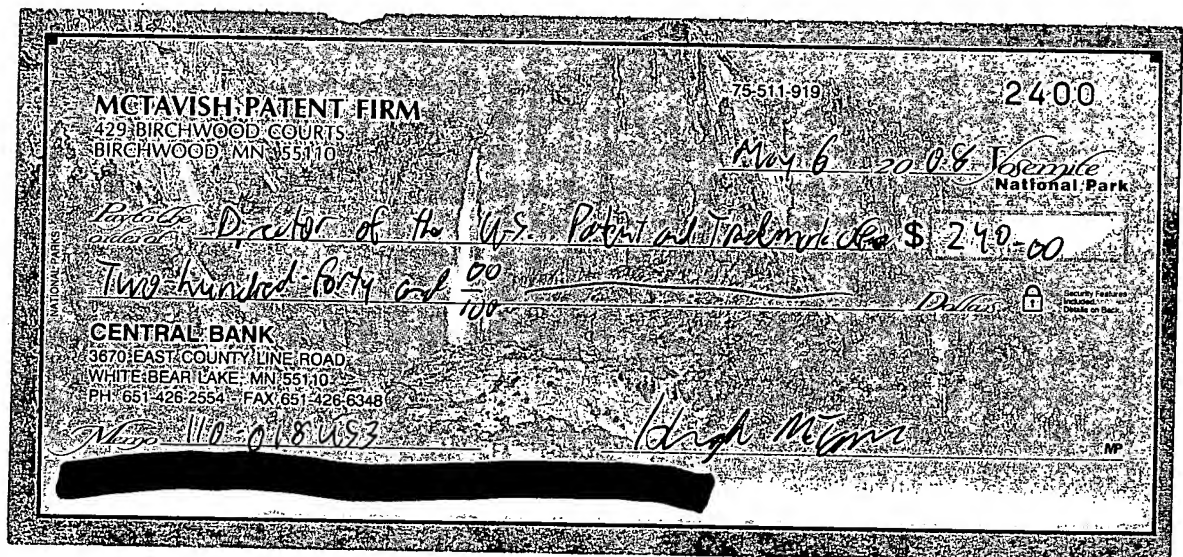 MCTAVISH PATENT FIRM
429 BIRCHWOOD COURTS
BIRCHWOOD, MN 55110
75-511-919
2400
May 6 20 08
Yosemite
National Park
Pay to the
order of Director of the U.S. Patent and Trademark Office $ 240.00
Two hundred forty and 00/100 Dollars
Security Features
Included.
Details on Back.
CENTRAL BANK
3670 EAST COUNTY LINE ROAD
WHITE BEAR LAKE, MN 55110
PH. 651-426-2554 FAX 651-426-6348
Memo 110-018US3
MP